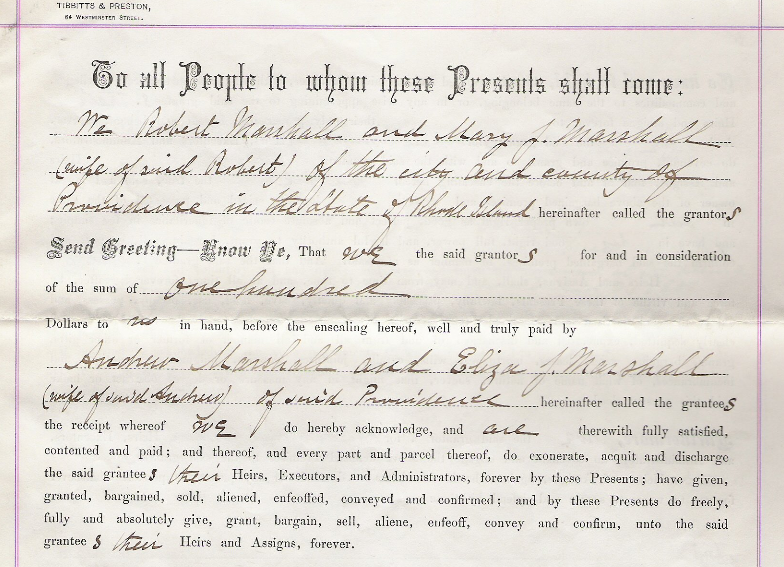 TIBBITTS & PRESTON,
54 WESTMINSTER STREET.
To all People to whom these Presents shall come:
We Robert Marshall and Mary J. Marshall
(wife of said Robert) of the city and county of
Providence in the State of Rhode Island hereinafter called the grantors
Send Greeting—Know Ye, That we the said grantors for and in consideration
of the sum of one hundred
Dollars to us in hand, before the ensealing hereof, well and truly paid by
Andrew Marshall and Eliza J. Marshall
(wife of said Andrew) of said Providence hereinafter called the grantees
the receipt whereof we do hereby acknowledge, and are therewith fully satisfied,
contented and paid; and thereof, and every part and parcel thereof, do exonerate, acquit and discharge
the said grantees their Heirs, Executors, and Administrators, forever by these Presents; have given,
granted, bargained, sold, aliened, enfeoffed, conveyed and confirmed; and by these Presents do freely,
fully and absolutely give, grant, bargain, sell, aliene, enfeoff, convey and confirm, unto the said
grantee s their Heirs and Assigns, forever.